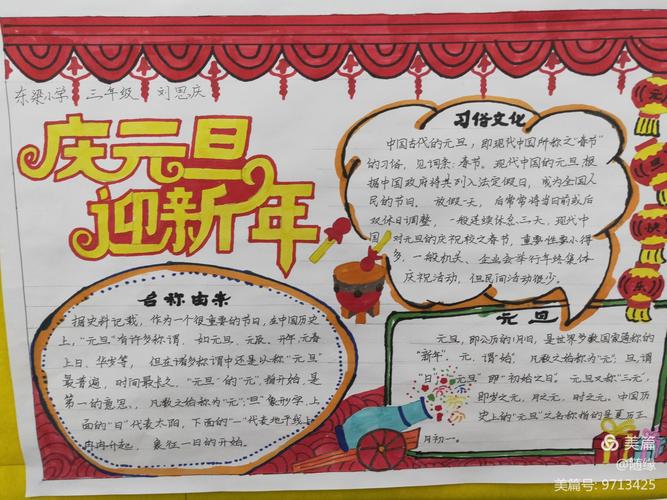 东梁小学 三年级 刘思庆
庆元旦
迎新年
习俗文化
中国古代的元旦，即现代中国所称之"春节"
的习俗，见词条：春节。现代中国的元旦，根
据中国政府将其列入法定假日，成为全国人
民的节日。放假一天，后常常将当日前或后
双休日调整，一般连续休息三天，现代中
国对元旦的庆祝较之春节，重要性要小得
多，一般机关、企业会举行年终集体
庆祝活动，但民间活动很少。
名称由来
据史料记载，作为一个很重要的节日，在中国历史
上，"元旦"有许多称谓，如元旦、元辰、开年、元春
上日、华岁等，但在诸多称谓中还是以称"元旦"
最普遍，时间最长久。"元旦"的"元"，指开始，是
第一的意思，凡数之始称为"元"，"旦"象形字，上
面的"日"代表太阳，下面的"一"代表地平线上
冉冉升起，象征一日的开始。
元旦
元旦，即公历的1月1日，是世界多数国家通称的
"新年"。元，谓"始"，凡数之始称为"元"；旦，谓
"日"；"元旦"即"初始之日"。元旦又称"三元"，
即岁之元，月之元，时之元。中国历
史上的"元旦"之名称指的是夏历正
月初一。
元
旦
快
乐
美篇
@随缘
美篇号：9713425